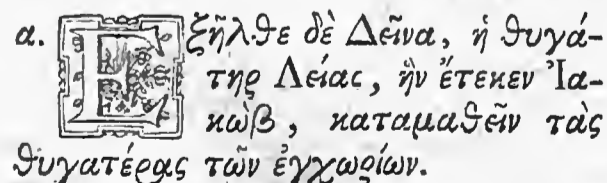 α. Ἐξῆλθε δὲ Δεῖνα, ἡ θυγά-
τηρ Λείας, ἣν ἔτεκεν Ἰα-
κὼβ, καταμαθεῖν τὰς
θυγατέρας τῶν ἐγχωρίων.